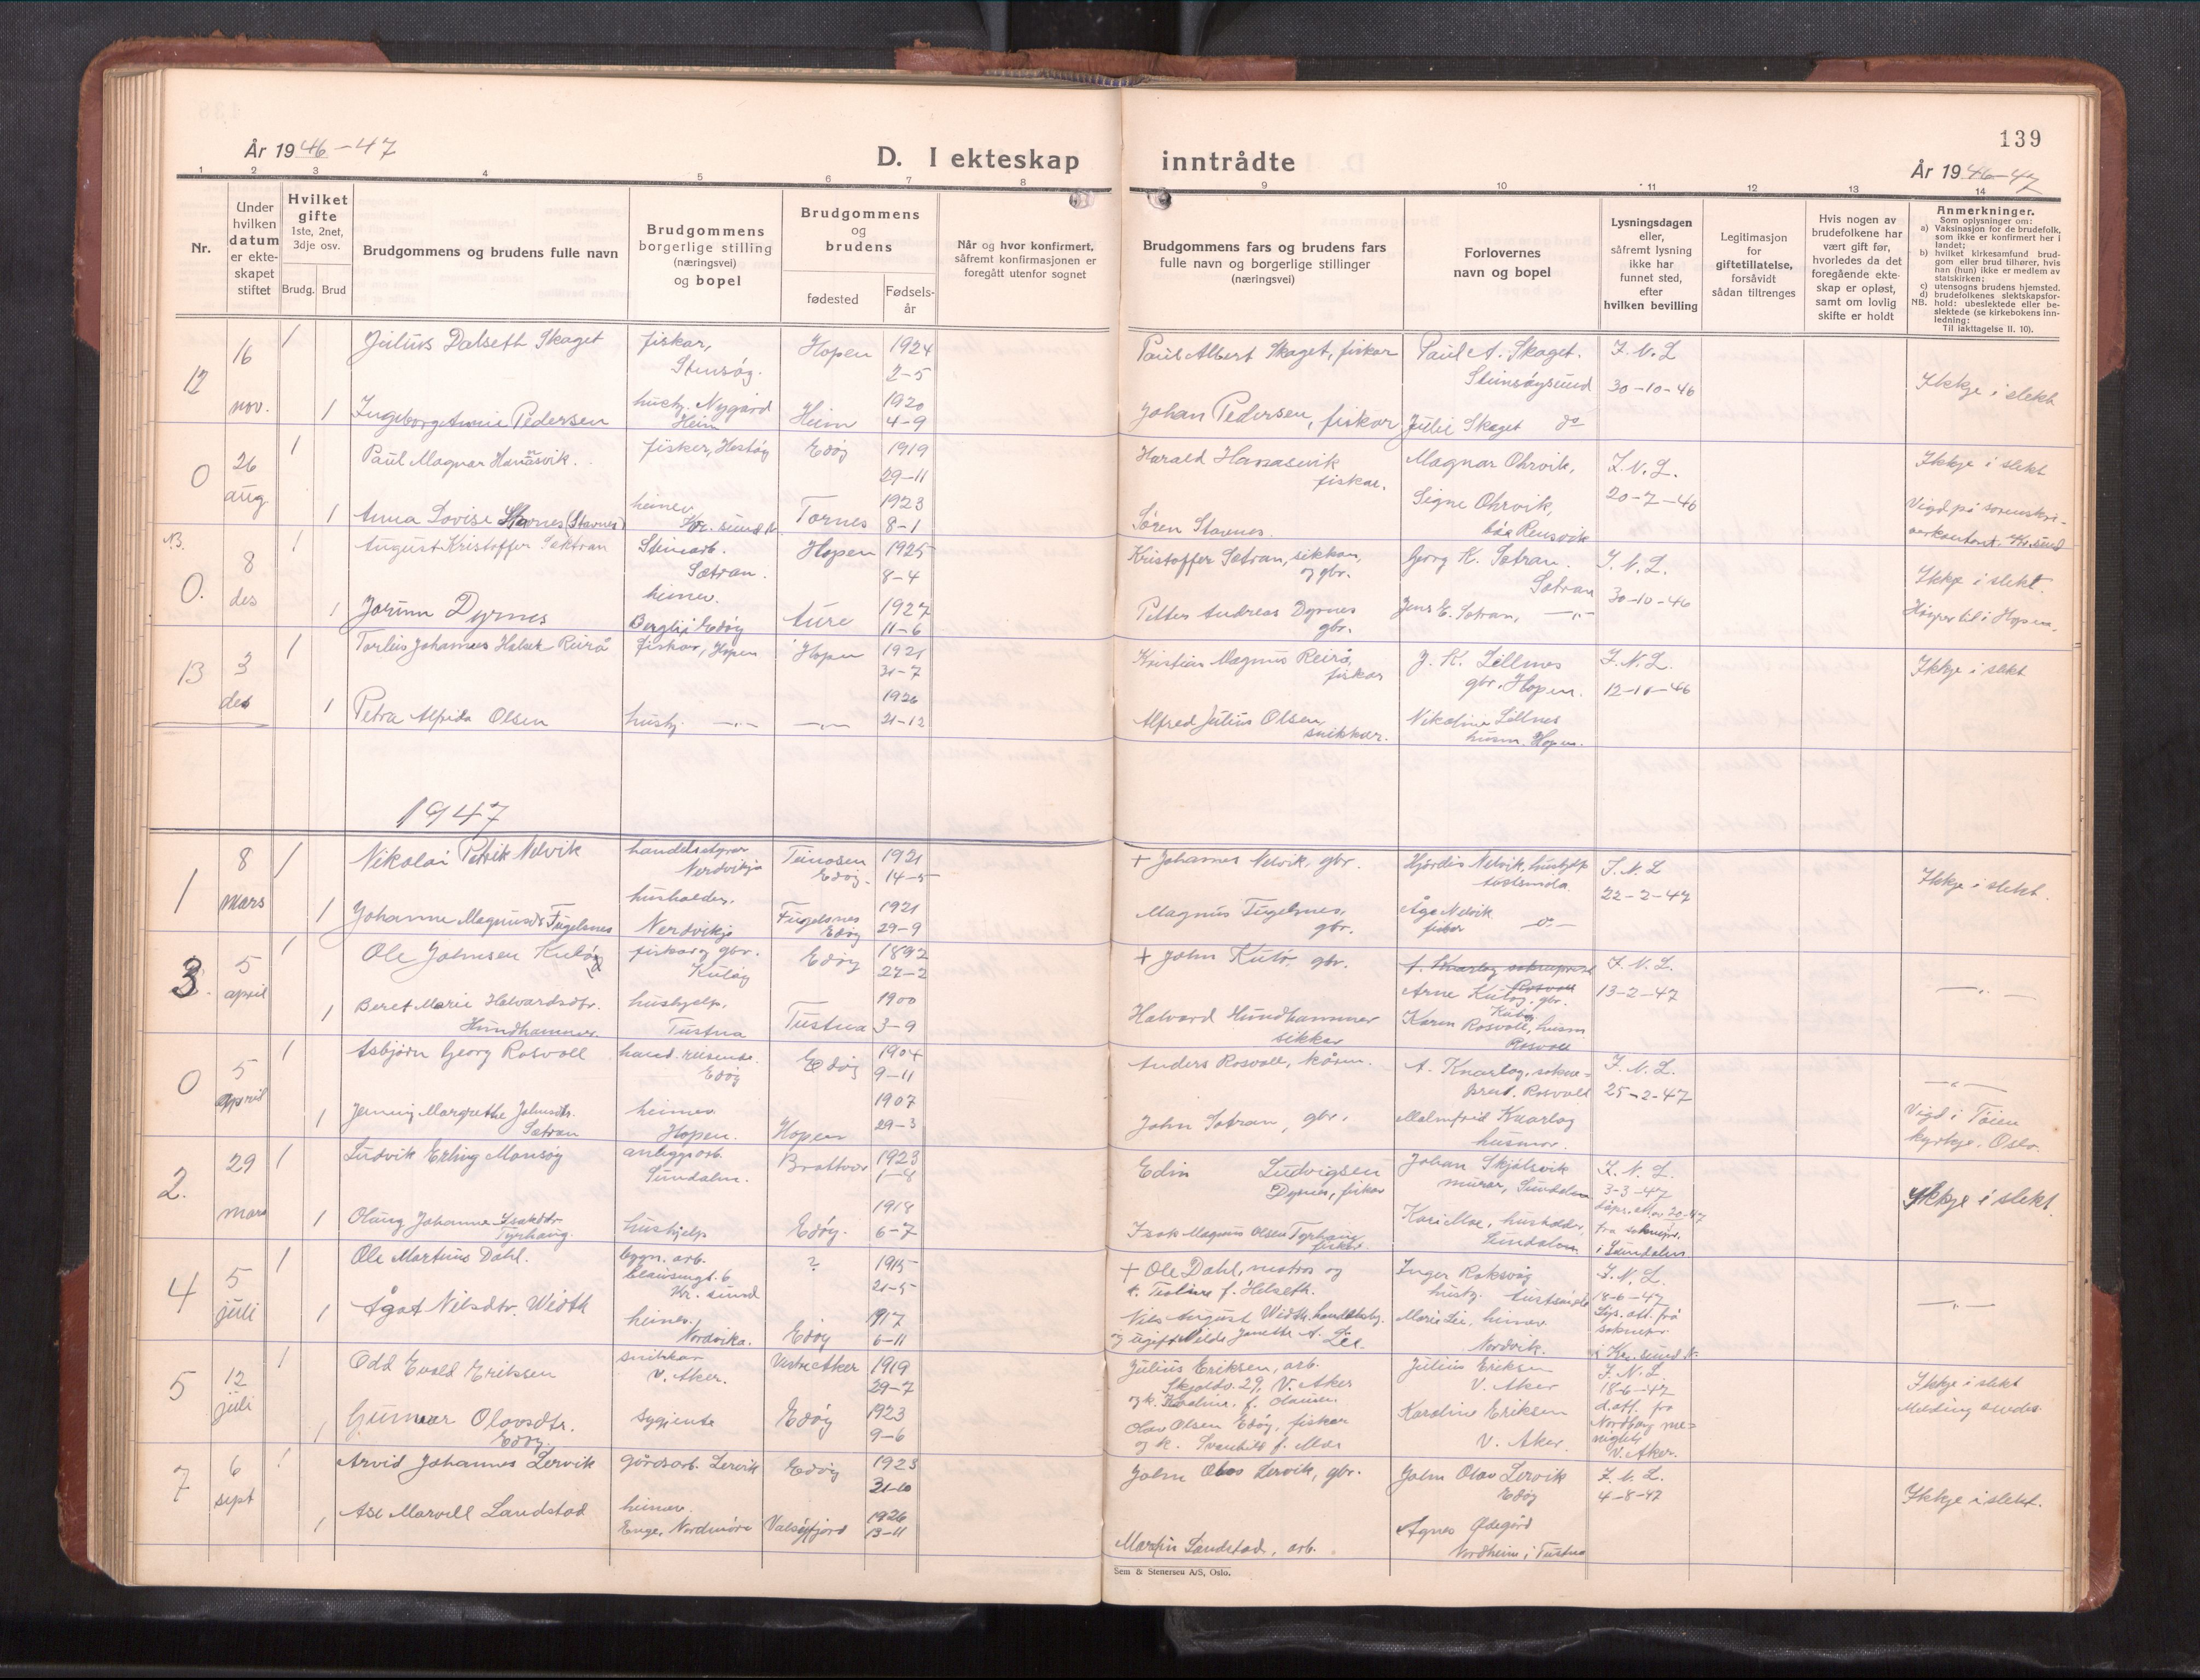 139
År 1946-47
D. I ekteskap inntrådte
År 1946-47
1 2 3 4 5 6 7 8 9 10 11 12 13 14
Nr.
Under
hvilken
datum
er ekte-
skapet
stiftet
Hvilket
gifte
1ste, 2net,
3dje osv.
Brudg. Brud
Brudgommens og brudens fulle navn
Brudgommens
borgerlige stilling
(næringsvei)
og bopel
Brudgommens
og
brudens
fødested
Fødsels-
år
Når og hvor konfirmert,
såfremt konfirmasjonen er
foregått utenfor sognet
Brudgommens fars og brudens fars
fulle navn og borgerlige stillinger
(næringsvei)
Forlovernes
navn og bopel
Lysningsdagen
eller,
såfremt lysning
ikke har
funnet sted,
efter
hvilken bevilling
Legitimasjon
for
giftetillatelse,
forsåvidt
sådan tiltrenges
Hvis nogen av
brudefolkene har
vært gift før,
hvorledes da det
foregående ekte-
skap er opløst,
samt om lovlig
skifte er holdt
Anmerkninger.
Som oplysninger om:
a) Vaksinasjon for de brudefolk,
som ikke er konfirmert her i
landet;
b) hvilket kirkesamfund brud-
gom eller brud tilhører, hvis
han (hun) ikke er medlem av
statskirken;
c) utensogns brudens hjemsted.
d) brudefolkenes slektskapsfor-
NB. hold: ubeslektede eller be-
slektede (se kirkebokens inn-
ledning:
Til iakttagelse II. 10).
12 16 nov. 1 Julius Dalseth Skaget fiskar, Hopen 1924 2-5 Paul Albert Skaget, fiskar Paul A. Skaget. F.N.L 30-10-46 Ikkje i slekt
1 Ingeborg Annie Pedersen hush. Nygård Heim Heim 1920 4-9 Johan Pedersen, fiskar Julie Skaget do
0 26 aug. 1 Paul Magnar Hanasvik. fisker, Edøy 1919 29-11 Harald Hanasvik fiskar. Magnar Ohrvik, F.N.L. 20-7-46 Ikkje i slekt
1 Anna Lovise Stavnes (Stavnes) heimev. Kr. sund N Tornes 1923 8-1 Søren Stavnes. Signe Ohrvik, Rensvik Vigd på sorenskri-
verkontoret Kr.sund
N3.
0. 8 des 1 August Kristoffer Sætran Steinarb. Sætran. Hopen 1925 8-4 Kristoffer Sætran, og gbr. Georg K. Sætran. Sætran F.N.L. 30-10-46 Ikkje i slekt.
1 Jorunn Dyrnes heimev. Berglii Edøy Aure 1927 11-6 Petter Andreas Dyrnes gbr. Jens E. Sætran, -"- Høyrer til i Hopen.
13 3 des 1 Torleis Johannes Holsek Reirå fiskar, Hopen Hopen 1921 31-7 Kristian Magnus Reirå, fiskar J. K. Lillnes gbr. Hopen. F.N.L. 12-11-46 Ikkje i slekt
1 Petra Alfrida Olsen hush. -"- -"- 1926 21-12 Alfred Julius Olsen snikkar. Nikoline Lillnes husm. Hopen.
1947
1 8 mars 1 Nikolai Patrik Nelvik handelsstyrar Nordvikja Edøy. 1921 14-5 + Johannes Nelvik, gbr. Hjördis Nelvik, hushjelp F.N.L 22-2-47 Ikkje i slekt.
1 Johanne Magnusdtr Fugelsnes husholder. Nerdvikja Fugelsnes Edøy 1921 29-9 Magnus Fugelsnes, gbr. Åge Nelvik fiskar -"-
3. 5 april 1 Ole Johnsen Kuløy fiskar og gbr. Kuløy Edøy 1892 24-2 + John Kulø gbr. Arne Kuløy, gbr. Kuløy F.N.L. 13-2-47 -"-
1 Beret Marie Halvardsdtr. Hundhammer hushjelp. Tustna Tustna 1900 3-9 Halvard Hundhammer Karen Rosvoll, husm Rosvoll
0 5 april 1 Asbjørn Georg Rosvoll hand. reisende. Edøy Edøy 1904 9-11 Anders Rosvoll, A. Knarlag, sokne-
prest. Rosvoll F.N.L. 25-2-47 -"-
1 Jenny Margrethe Johnsdtr. Sætran heimev. Hopen. Hopen 1907 29-3 John Sætran, gbr. Malmfrid Knarlag husmor. Vigd i Tøien
kyrkje, Oslo.
2. 29 mars 1 Ludvik Erling Monsøy anleggsarb. Sundalen. Brattvær 1923 1-8 Edin Ludvigsen Dyrnes, fiskar Johan Skjølsvik murar, Sundalen F.N.L. 3-3-47 Ikkje i slekt.
1 Olaug Johanne Isaksdtr Tyrhaug. hushjelp Edøy. 1918 6-7 Isak Magnus Olsen Tyrhaug fiskar. Kari Moe, husholder, Sundalen frå soknepr. i Sundalen
4 5 juli 1 Ole Martinus Dahl. bygn. arb. Clausengt. 6 Kr. sund ? 1915 21-5 + Ole Dahl, matros og k. f. Helseth. Inger Roksvåg F.N.L. 18-6-47 -"-
1 Ågot Nilsdtr. Width heimev. Nordvika. Edøy 1917 6-11 Nils August Width, og ugift Hilda Janette A. Lie. Marie Lie, heimev. Nordvik. Lys. att. frå soknepr. i Kr. sund N.
5 12 juli 1 Odd Evald Eriksen snikkar V. Aker. Vestre Aker 1919 29-7 Julius Eriksen, arb. Skjoldv. 29, V. Aker Julius Eriksen V. Aker F.N.L. 18-6-47 Ikkje i slekt
1 Gunvor Olavsdtr. Edøy. Sygjente Edøy 1923 9-6 Olav Olsen Edøy, fiskar og k. Svanhild f. Moe Karoline Eriksen V. Aker. V. Aker. Melding sendes.
7 6 sept 1 Arvid Johannes Lervik gårdsarb. Lervik Edøy 1923 31-10 John Olav Lervik, gbr. John Olav Lervik Edøy F.N.L. 4-8-47 Ikkje i slekt.
1 Åse Marvell Landstad heimev. Enge, Nordmøre Valsøyfjord 1926 13-11 Martin Landstad, arb. Agnes Ødegård Nordheim i Tustna
Sem & Stenersen A/S, Oslo.